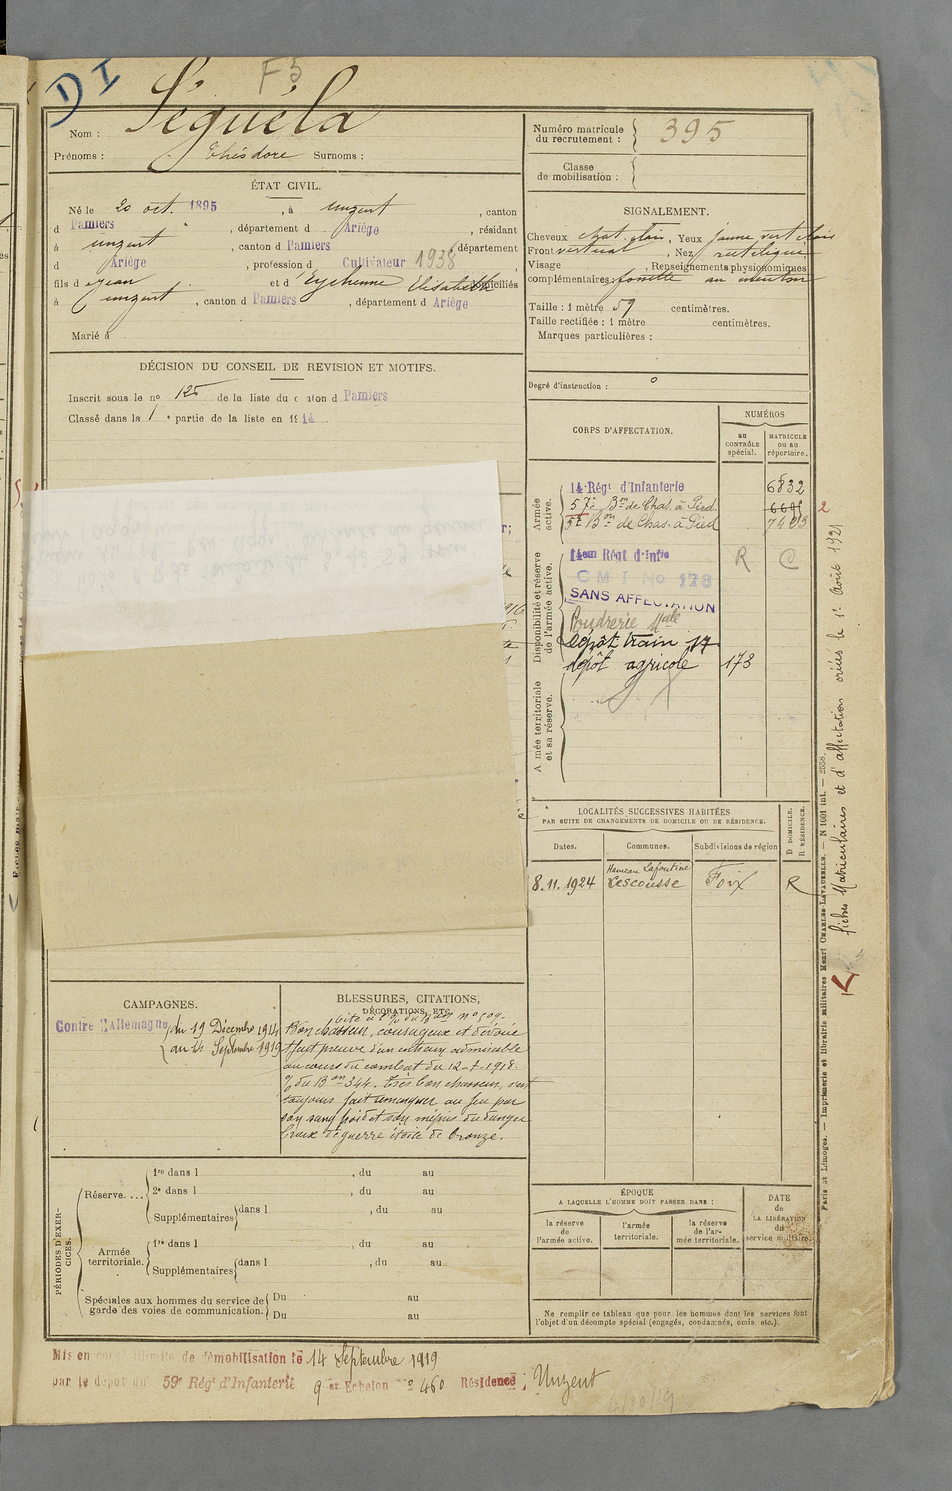 DI
F5
Nom : Séguéla
Prénoms : Théodore Surnoms :
ÉTAT CIVIL.
Né le 20 oct. 1895, à Unzent, canton
d Pamiers, département d Ariège, résidant
à Unzent, canton d Pamiers, département
d Ariège, profession d Cultivateur 1938,
fils d Jean et d Eychenne Elisabeth domiciliés
à Unzent, canton d Pamiers, département d Ariège
Marié à
DÉCISION DU CONSEIL DE REVISION ET MOTIFS.
Inscrit sous le no 125 de la liste du canton d Pamiers
Classé dans la 1re partie de la liste en 1914.
CAMPAGNES.
Contre l'Allemagne
du 19 Décembre 1914
au 14 Septembre 1919
BLESSURES, CITATIONS,
DÉCORATIONS, ETC.
Cité à l'o/ du Bon no 509.
Bon chasseur, courageux et dévoué
a fait preuve d'un entrain admirable
au cours du combat du 12-7-1918.
o/ du Bon 344. Très bon chasseur, s'est
toujours fait remarquer au feu par
son sang froid et son mépris du danger
Croix de guerre étoile de bronze.
PÉRIODES D'EXERCICES.
Réserve....
1re dans l , du au
2e dans l , du au
Supplémentaires dans l , du au
Armée territoriale.
1re dans l , du au
Supplémentaires dans l , du au
Spéciales aux hommes du service de
garde des voies de communication.
Du au
Du au
Mis en congé illimité de démobilisation le 14 Septembre 1919
par le dépôt du 59e Régt d'Infanterie 9er Echelon No 460 Résidence ; Unzent
Numéro matricule
du recrutement : 395
Classe
de mobilisation :
SIGNALEMENT.
Cheveux chat. clair, Yeux jaune vert clair
Front vertical, Nez rectiligne
Visage , Renseignements physionomiques
complémentaires : fossette au menton
Taille : 1 mètre 59 centimètres.
Taille rectifiée : 1 mètre centimètres.
Marques particulières :
Degré d'instruction : 0
CORPS D'AFFECTATION.
NUMÉROS
au
CONTRÔLE
spécial.
MATRICULE
ou au
répertoire.
Armée
active.
14e Régt d'Infanterie 6832
57e Bon de Chas. à Pied. 6695
5e Bon de Chas. à Pied 7423
2
Disponibilité et réserve
de l'armée active.
14em Régt d'Infie R C
C M I No 178
SANS AFFECTATION
Poudrerie Nale
Dépôt train 17
Dépôt agricole 173
Armée territoriale
et sa réserve.
LOCALITÉS SUCCESSIVES HABITÉES
PAR SUITE DE CHANGEMENTS DE DOMICILE OU DE RÉSIDENCE.
Dates.
Communes.
Subdivisions de région
D DOMICILE.
R RÉSIDENCE.
8.11.1924 Hameau Lafontine Lescousse Foix R
ÉPOQUE
À LAQUELLE L'HOMME DOIT PASSER DANS :
la réserve
de
l'armée active.
l'armée
territoriale.
la réserve
de l'ar-
mée territoriale.
DATE
de
LA LIBÉRATION
du
service militaire.
Ne remplir ce tableau que pour les hommes dont les services font
l'objet d'un décompte spécial (engagés, condamnés, omis, etc.).
Paris et Limoges. — Imprimerie et librairie militaires Henri CHARLES-LAVAUZELLE. — N 1601 int. — 2558.
fiches Matriculaires et d'affectation créées le 1er Août 1921